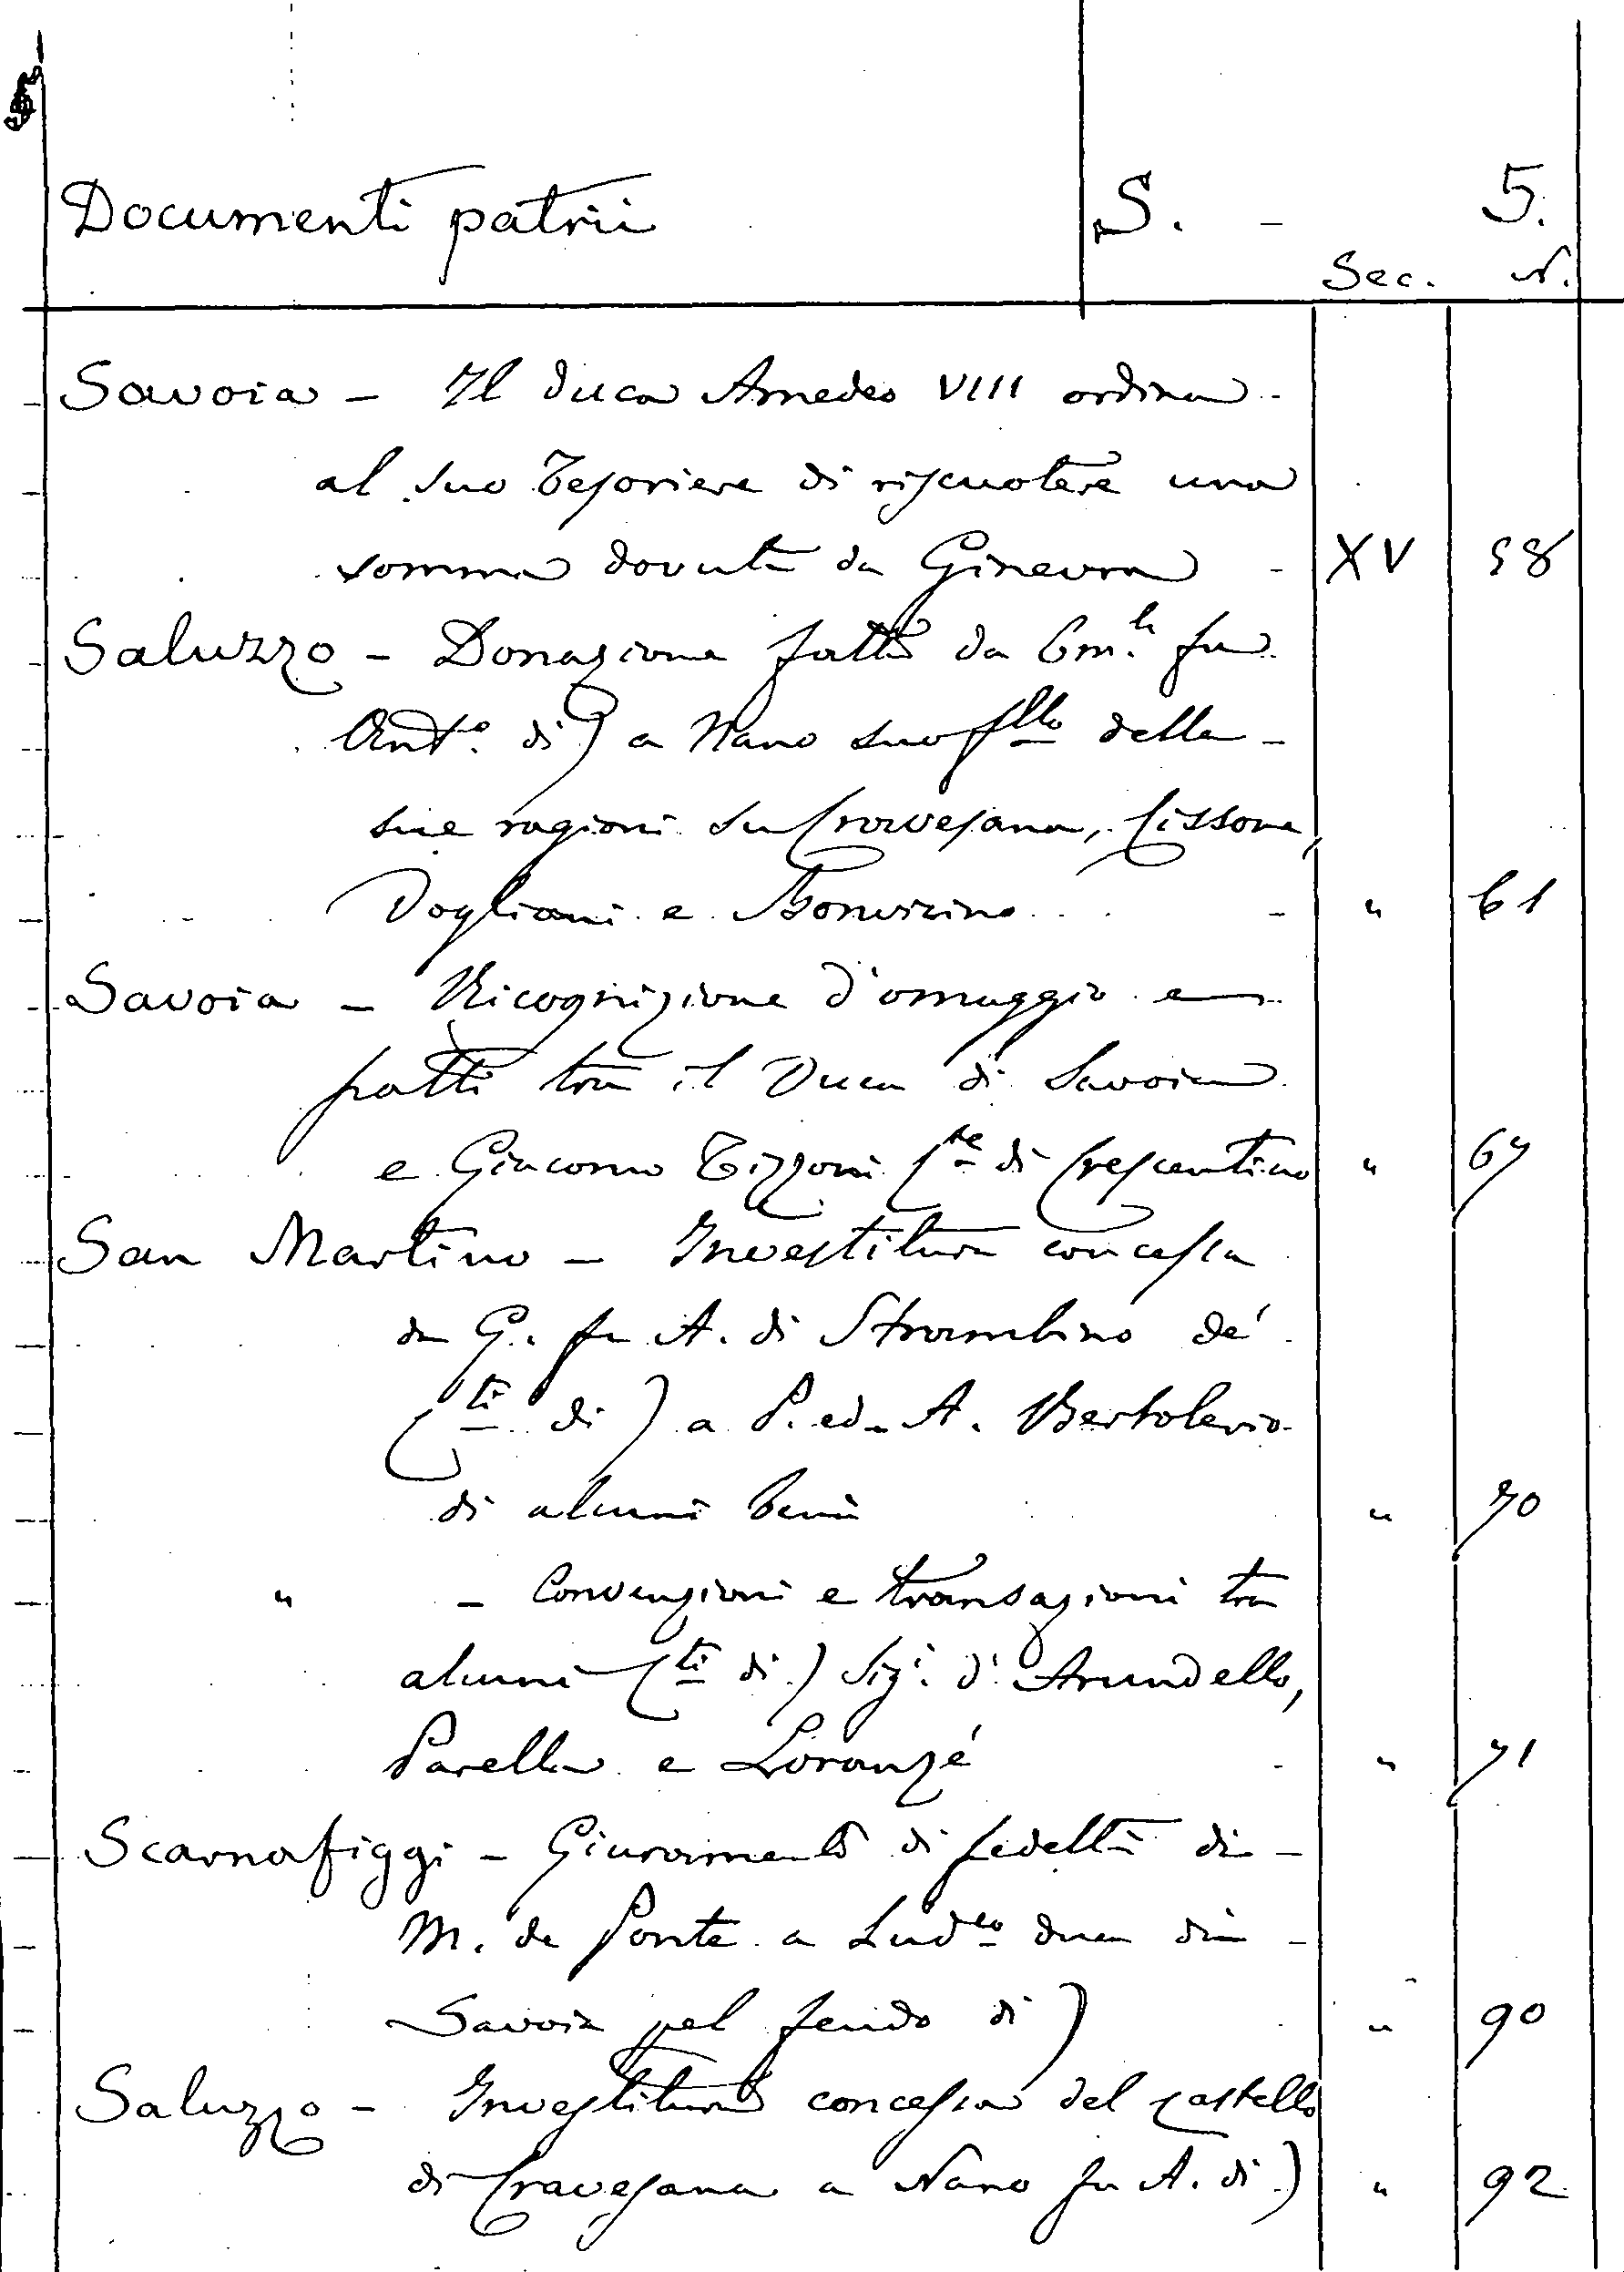 Documenti patrii S. - 5.
Sec. N.
Savoia - Il duca Amedeo VIII ordina
al suo Tesoriere di riscuotere una
somma dovuta da Ginevra - XV 58
Saluzzo - Donazione fatta da Em.le fu
Ant.o di) a Nano suo f.llo delle
sue ragioni su Cravesana, Cissone,
Dogliani e Bonvicino - " 61
Savoia - Ricognizione d'omaggio e
patti tra il Duca di Savoia
e Giacomo Tizzoni C.te di Crescentino " 67
San Martino - Investitura concessa
da G. fu A. di Strambino de'
C.ti di) a P. ed A. Bertolerio
di alcuni beni " 70
" - Convenzioni e transazioni tra
alcuni C.ti di) Sig.i d'Arundello,
Parella e Loranzé - " 71
Scarnafiggi - Giuramento di fedeltà di
M. de Ponte a Lud.co duca di
Savoia pel feudo di) " 90
Saluzzo - Investitura concessa del castello
di Cravesana a Nano fu A. di) " 92